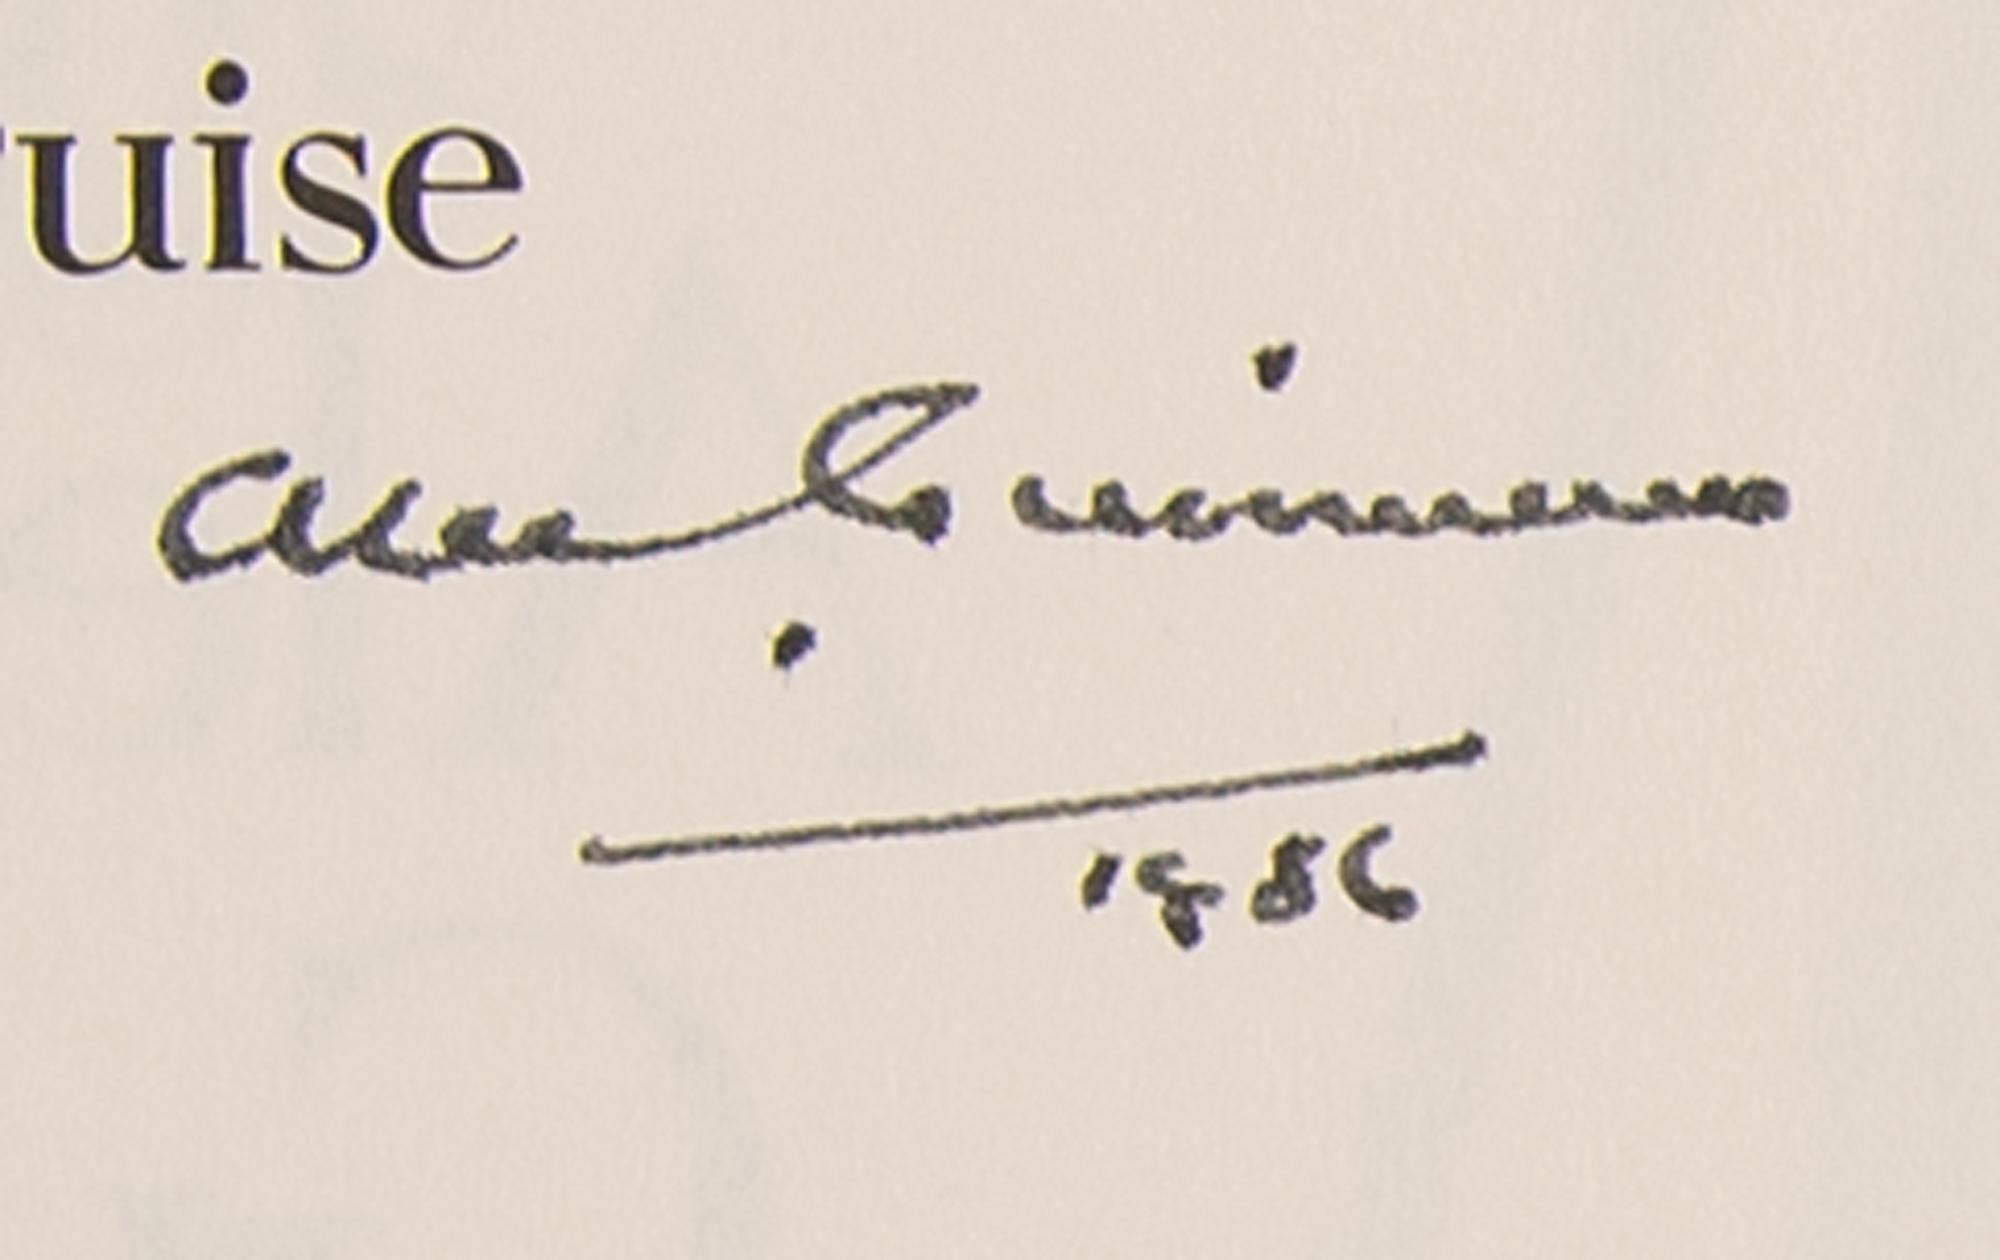 uise
Alec Guinness
1986